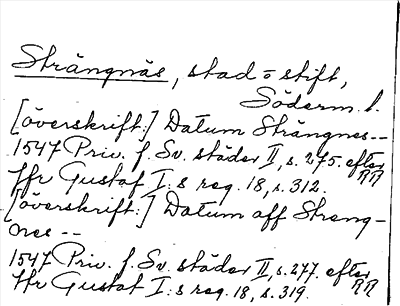 Strängnäs, stad o stift,
Söderm. l.
[överskrift:] Datum Strängnes--
1547 Priv. f. Sv. städer II, s. 275. efter
Hr Gustaf I:s reg. 18, s. 312. RA
[överskrift:] Datum aff Streng-
nes --
1547 Priv. f. Sv. städer II, s. 277. efter
Hr Gustaf I:s reg. 18, s. 319. RA